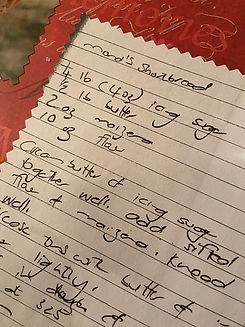 Mand's Shortbread
1/4 lb (4oz) icing sugar
1/2 lb butter
2 oz maizena
10 oz flour
Cream butter & icing sugar
together well. add sifted
flour & maizena. Knead
well.
tins with butter &
lightly,
at 325